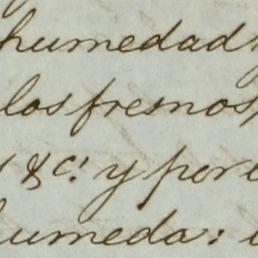 humedad
los fresnos,
&c.ª y por
humeda: